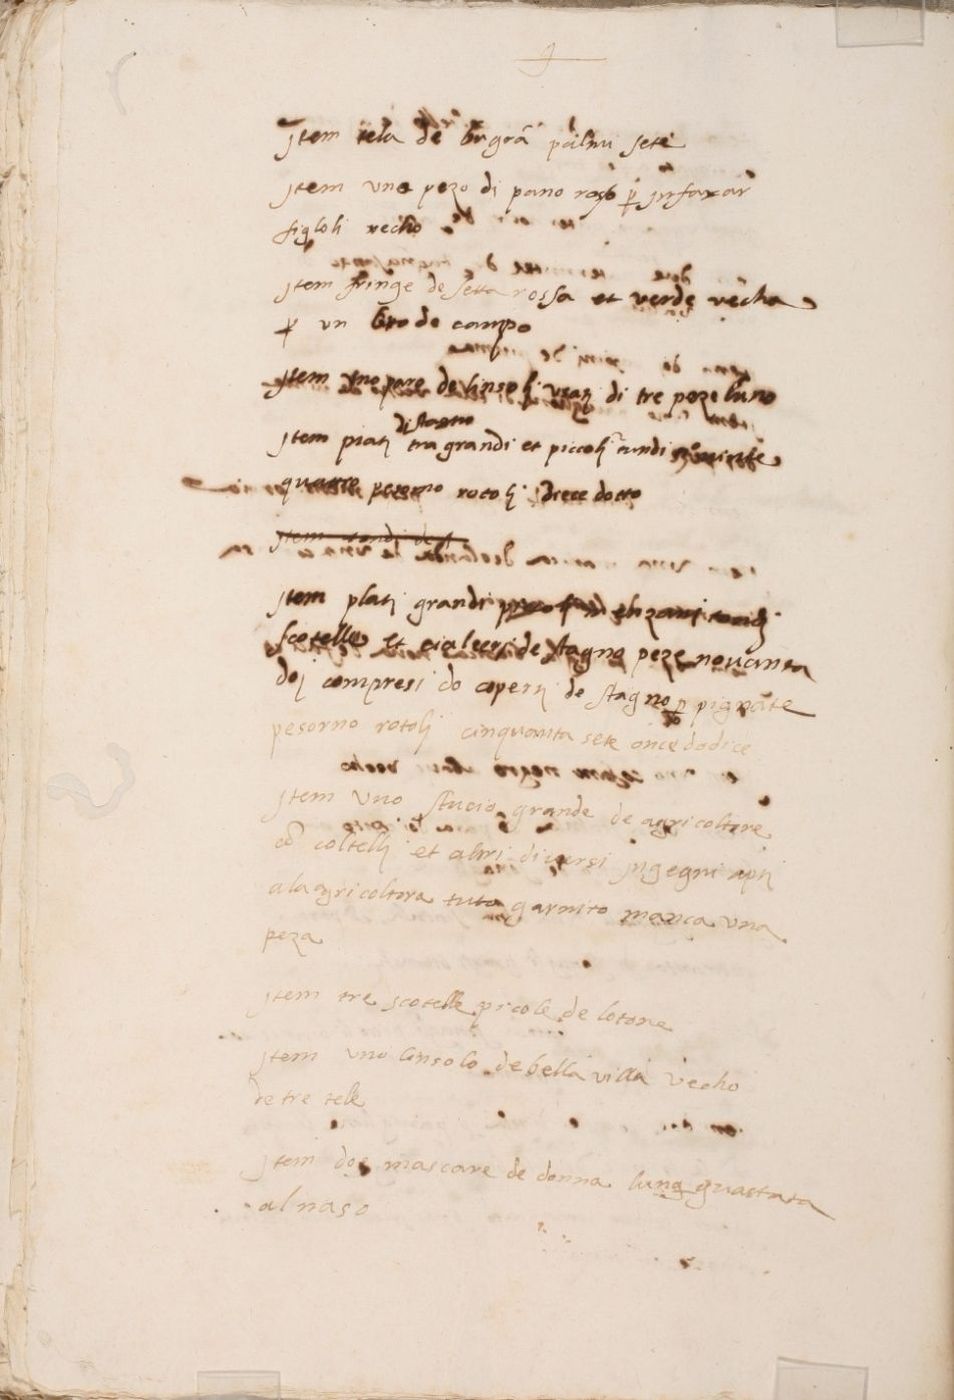 Jtem tela de bugrã palmi sete
jtem uno pezo di pano roso p infaxar
figloli vecho
jtem fringe de setta rossa et verde vecha
p un bro de campo
jtem uno paro de linsolj usatj di tre peze luno
di stagno
jtem piatj tra grandi et piccolj tundi
quatro pesorno rotolj diece dotto
jtem tondi de st
jtem platj grandi
scotelle et de stagno peze novanta
doj compresi do copertj de stagno p pignate
pesorno rotolj cinquanta sete once dodice
jtem uno stucio grande de agricoltore
cõ coltellj et altri diversi jngegni aptj
a la agricoltora tuto garnito manca una
peza
jtem tre scotelle picole de lotone
jtem uno linsolo de bella villa vecho
de tre tele
jtem doe mascare de donna luna guastata
al naso